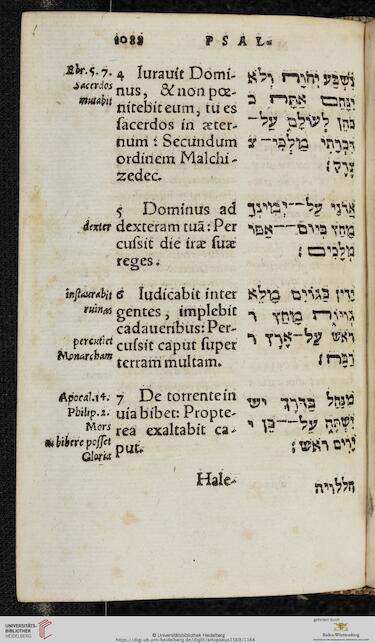 1088 PSAL-
Ebr. 5. 7.
Sacerdos
mutabit
4 Iurauit Domi-
nus, & non pœ-
nitebit eum, tu es
sacerdos in æter-
num: Secundum
ordinem Malchi-
zedec.
נִשְׁבַּע יְהוָה וְלֹא
יִנָּחֵם אַתָּה כ
כֹהֵן לְעוֹלָם עַל־
דִּבְרָתִי מַלְכִּי־ צ
צֶדֶק׃
dexter
5 Dominus ad
dexteram tuã: Per
cussit die iræ suæ
reges.
אֲדֹנָי עַל־יְמִינְךָ
מָחַץ בְּיוֹם־אַפּוֹ
מְלָכִים׃
instaurabit
ruinas
percutiet
Monarcham
6 Iudicabit inter
gentes, implebit
cadaueribus: Per-
cussit caput super
terram multam.
יָדִין בַּגּוֹיִם מָלֵא
גְוִיּוֹת מָחַץ ר
רֹאשׁ עַל־אֶרֶץ ר
רַבָּה׃
Apocal. 14.
Philip. 2.
Mors
bibere posset
Gloria
7 De torrente in
uia bibet: Propte-
rea exaltabit ca-
put.
מִנַּחַל בַּדֶּרֶךְ יש
יִשְׁתֶּה עַל־כֵּן י
יָרִים רֹאשׁ׃
Hale-
הללויה
UNIVERSITÄTS-
BIBLIOTHEK
HEIDELBERG
© Universitätsbibliothek Heidelberg
https://digi.ub.uni-heidelberg.de/diglit/artopoeus1569/1166
gefördert durch
Baden-Württemberg